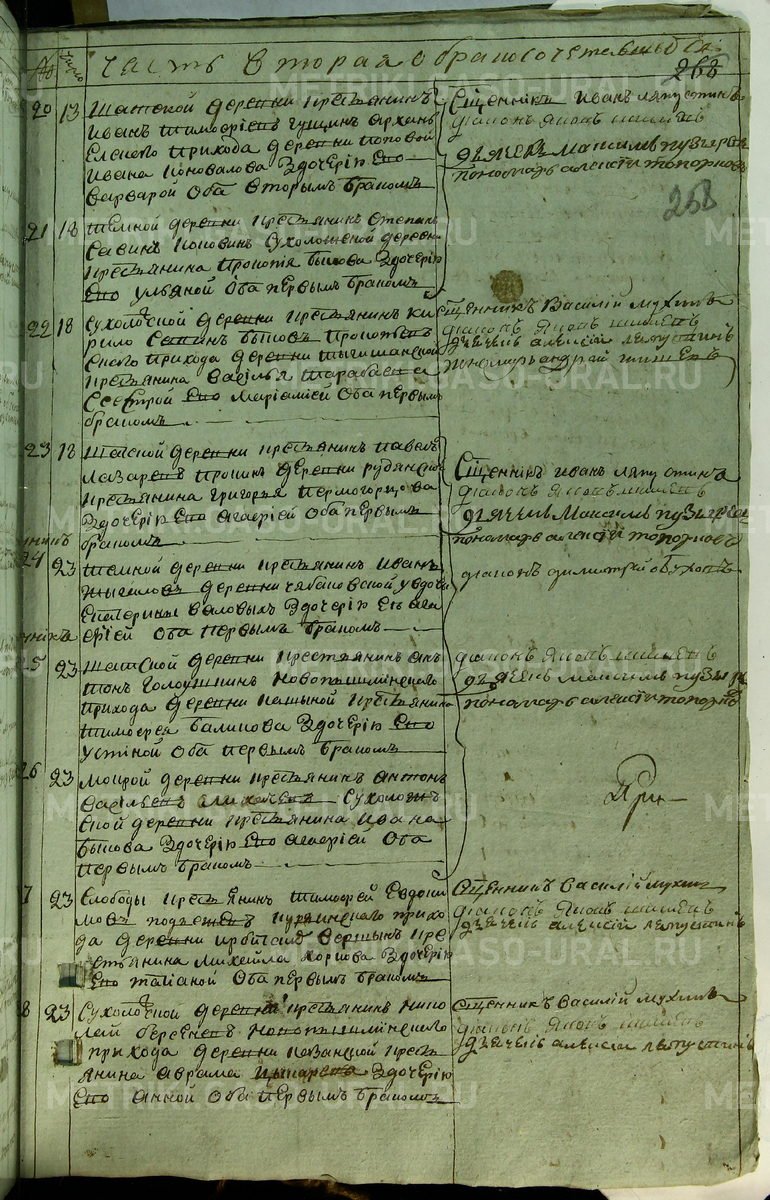 № число Часть вторая о бракосочетавшихся
268
268
20 13 Шатской деревни крестьянинъ
Иванъ Тимофѣевъ Гущинъ Архан
гелского прихода деревни Поповой
Ивана Коновалова здочерію Ево
Варварой оба вторымъ бракомъ
Священникъ Иванъ Ляпустинъ
діаконъ Яковъ
дьячекъ Максимъ Пузырев
пономарь Алексѣй Топорков
21 18 Темной деревни крестьянинъ Степанъ
Савинъ Поповинъ Сухоложской деревни
крестьянина Прокопія Быкова здочерію
Ево Ульяной оба первымъ бракомъ
22 18 Сухоложской деревни крестьянинъ Ки
рило Савинъ Быковъ Прокопьев
ского прихода деревни
крестьянина Василья Тарабаева
сестрой Ево Маріамией оба первымъ
бракомъ
Священникъ Василій Мухинъ
діаконъ Яковъ
дьячекъ Алексій Ляпустинъ
пономарь Андрей
23 18 Шатской деревни крестьянинъ Павелъ
Лазаревъ Пронинъ деревни Рудянской
крестьянина Григорья Пермогорцова
здочерію Ево Агафіей оба первымъ
бракомъ
Священникъ Иванъ Ляпустинъ
діаконъ Яковъ
дьячекъ Максимъ Пузырев
пономарь Алексѣй Топорковъ
24 23 Темной деревни крестьянинъ Иванъ
деревни Чабановской у вдовы
Екатерины Валовыхъ здочерію Ея Ага
фіей оба первымъ бракомъ
діаконъ Димитрей Обуховъ
25 23 Шатской деревни крестьянинъ Ан
тонъ Голоушинъ Новопышминского
прихода деревни крестьянина
Тимофея Балинова здочерію Ево
Устіной оба первымъ бракомъ
діаконъ Яковъ
дьячекъ Максимъ Пузырев
пономарь Алексѣй Топорковъ
26 23 Мокрой деревни крестьянинъ Антонъ
Васильевъ Сухолож
ской деревни крестьянина Ивана
Быкова здочерію Ево Агафіей оба
первымъ бракомъ
7 23 Слободы крестьянинъ Тимофей Евдоки
мовъ прихо
да деревни вершинъ кре
стьянина Михейла Коршова здочерію
Ево Татіаной оба первымъ бракомъ
Священникъ Василій Мухинъ
діаконъ Яковъ
дьячекъ Алексій Ляпустинъ
8 23 Сухоложской деревни крестьянинъ Нико
лай Берсеневъ Новопышминского
прихода деревни Казанской кресть
янина Аврама здочерію
Ево Анной оба первымъ бракомъ
Священникъ Василій Мухинъ
діаконъ Яковъ
дьячекъ Алексѣи Ляпустинъ
METRIKI.GASO-URAL.RU